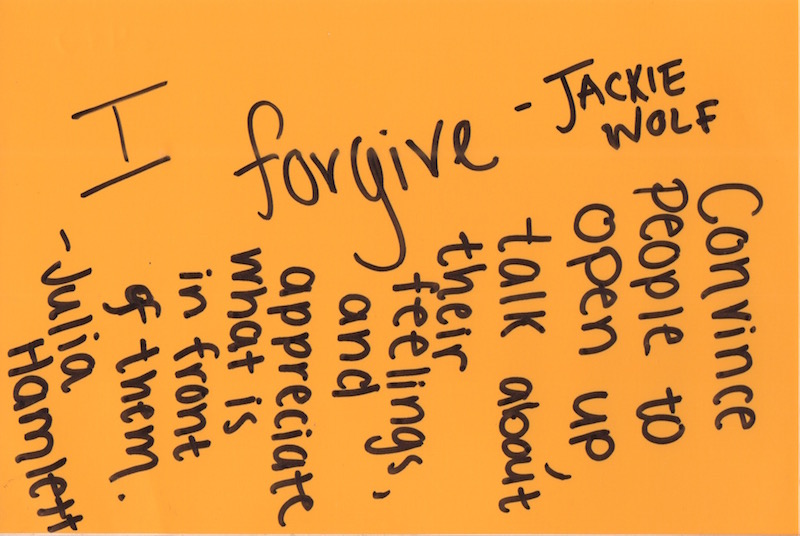 I forgive - JACKIE
WOLF
Convince
people to
open up,
talk about
their
feelings,
and
appreciate
what is
in front
of them.
- Julia
Hamlett